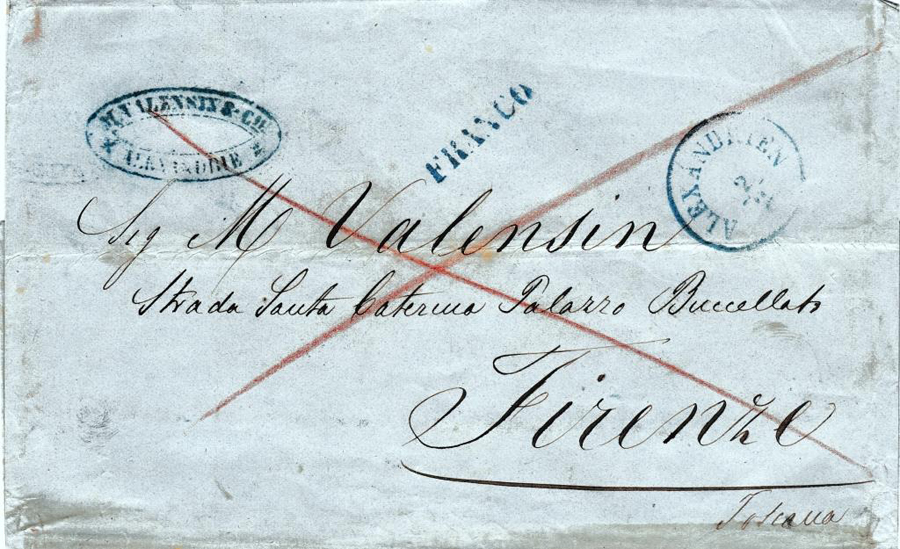 M. VALENSIN & CIE
ALEXANDRIE
FRANCO
ALEXANDRIEN
Sig M Valensin
Strada Santa Caterina Palazzo Buccellato
Firenze
Toscana